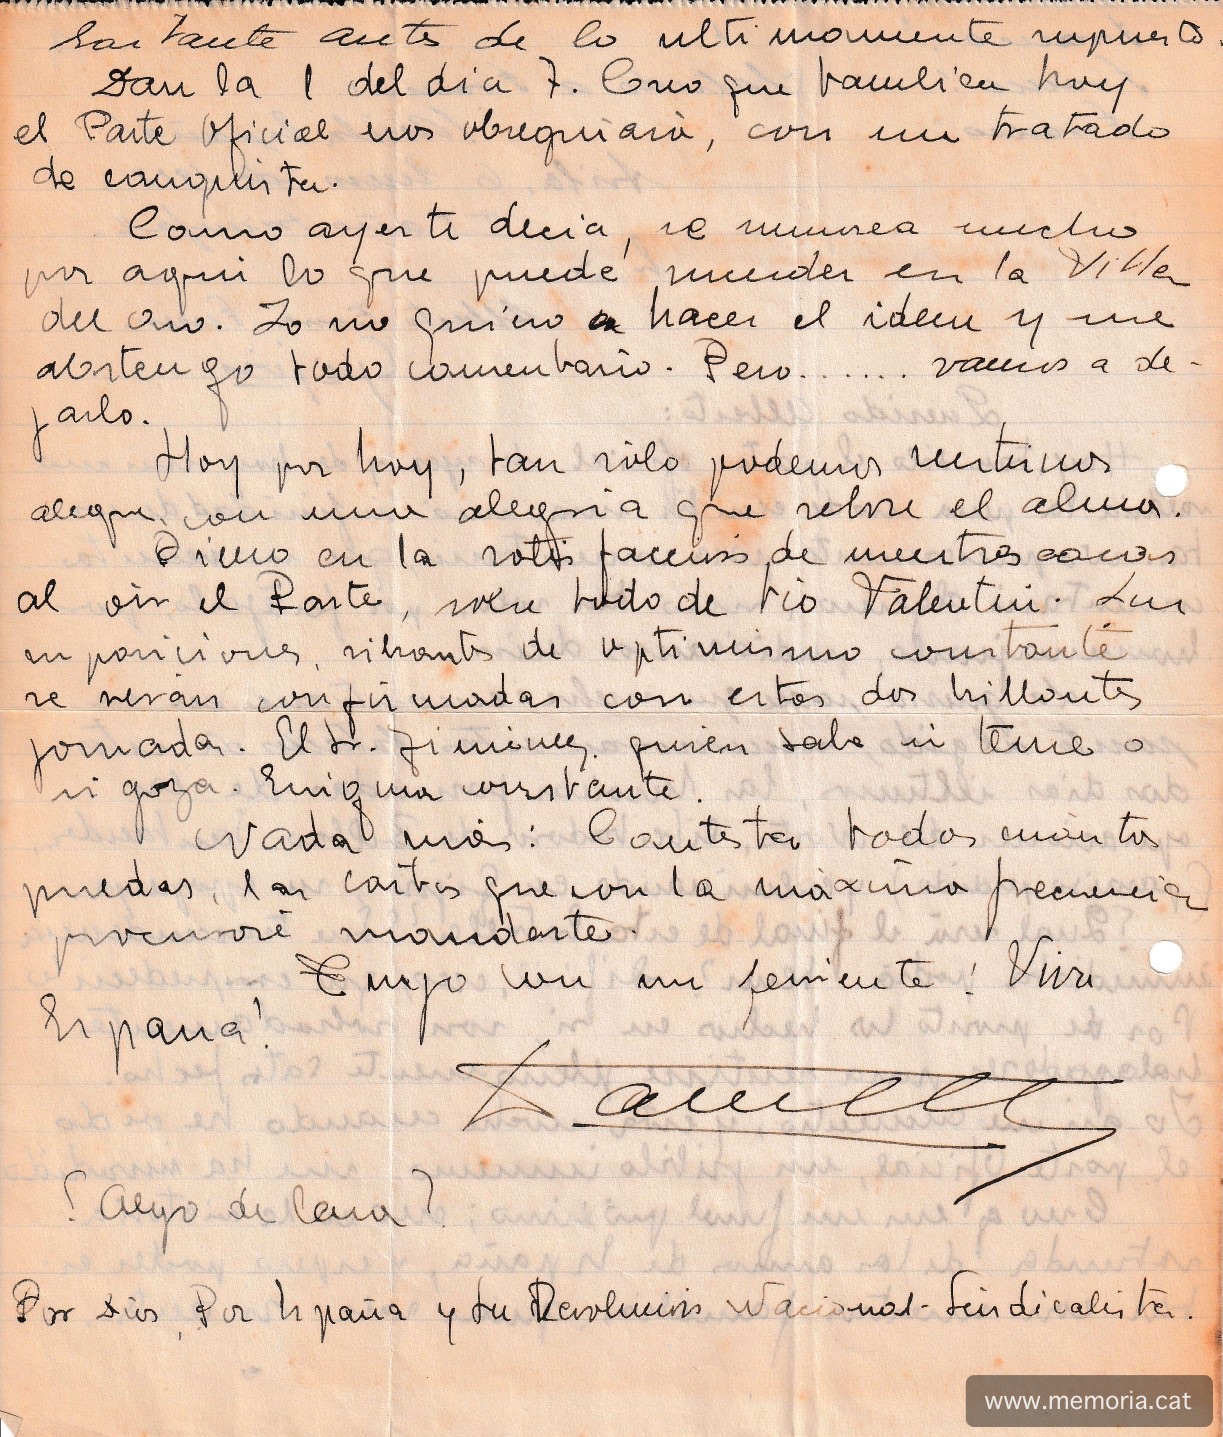 bastante antes de lo ultimamente supuesto.
Dan la 1 del dia 7. Creo que tambien hoy
el Parte Oficial nos obsequiará, con un tratado
de conquista.
Como ayer te decia, se rumorea mucho
por aqui lo que puede suceder en la Villa
del Oso. Yo no quiero a hacer el idem y me
abstengo todo comentario. Pero....... vamos a de-
jarlo.
Hoy por hoy, tan sólo podemos sentirnos
alegres, con una alegria que sobre el alma.
Pienso en la satisfaccion de nuestras casas
al oir el Parte, sobre todo de tio Valentin. Sus
suposiciones, vibrantes de optimismo constante
se verán confirmadas con estas dos brillantes
jornadas. El Sr. Jiménez, quien sabe si teme o
si goza. Enigma constante.
Nada más: Contesta todas cuantas
puedas, las cartas que con la máxima frecuencia
procuraré mandarte.
Tuyo con un ferviente ¡Viva
España!
¿Algo de Casa?
Por Dios, Por España y Su Revolucion Nacional-Sindicalista.
www.memoria.cat